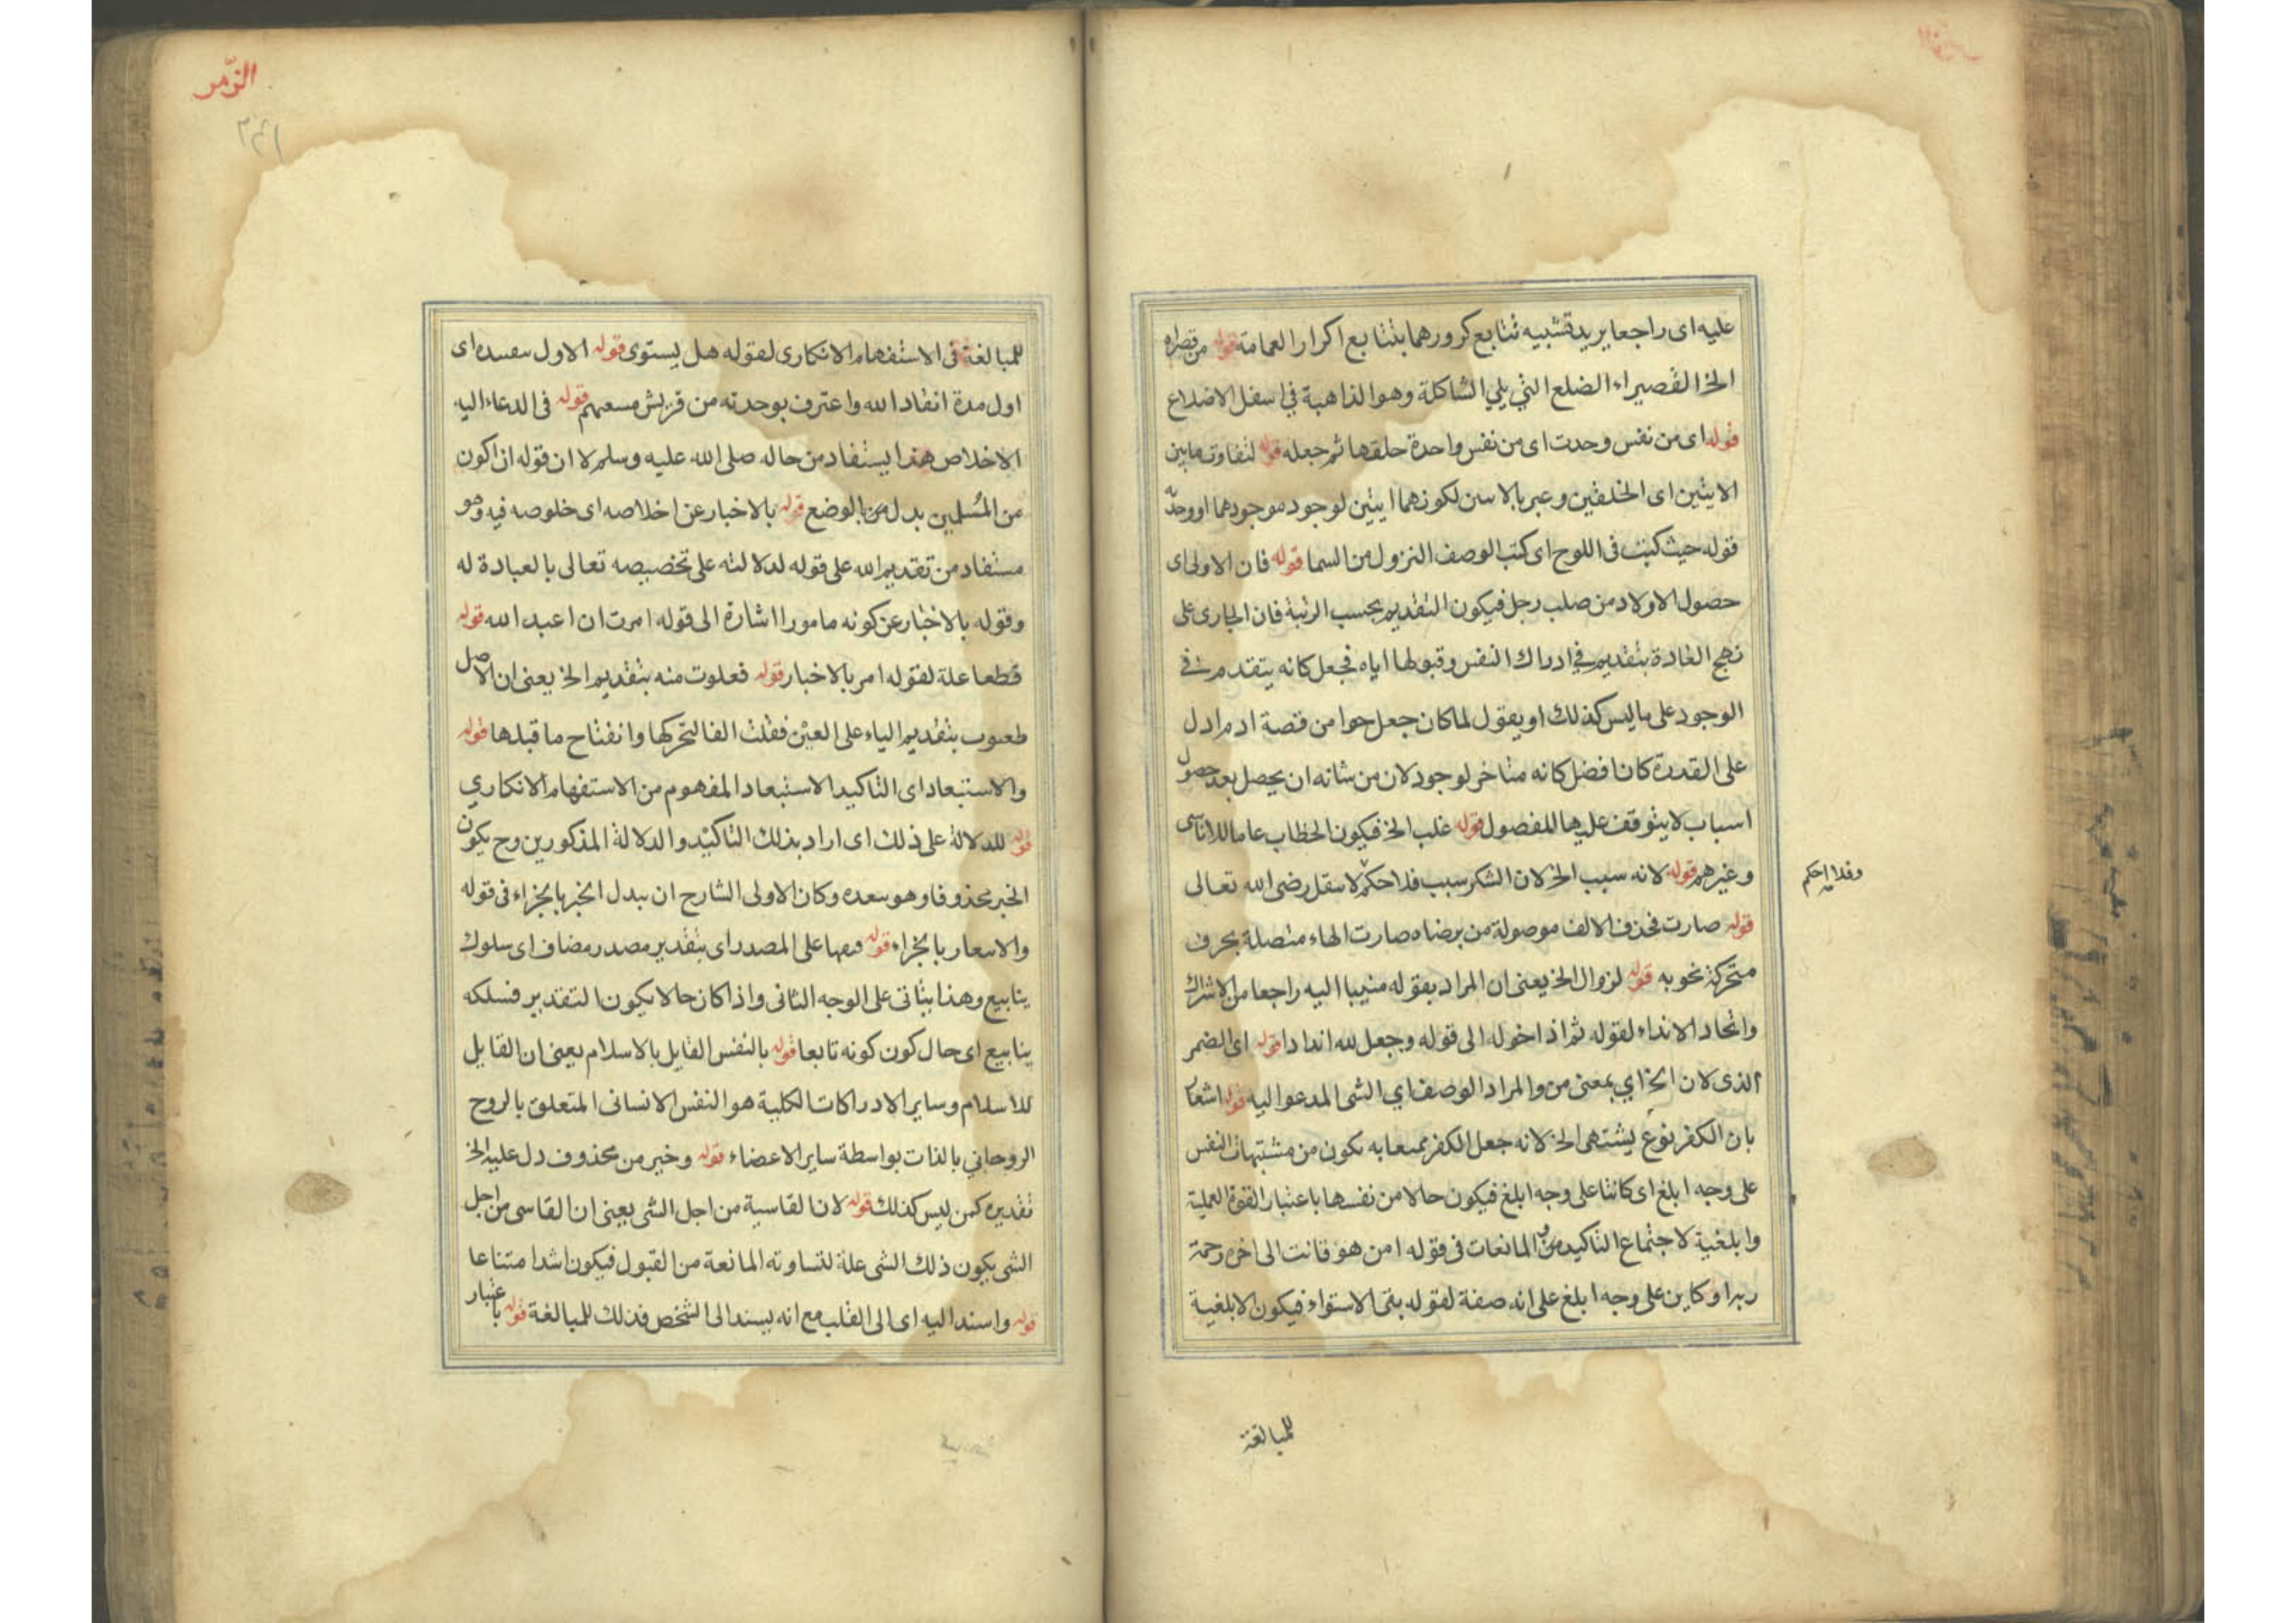 عليه اى راجعا يريد تشبيه تتابع كرورهما بتتابع اكرار العمامة قوله من قصراه
الخ القصيراء الضلع التي يلي الشاكلة وهو الذاهبة في اسفل الاضلاع
قوله اى من نفس وحدت اى من نفس واحدة خلقها ثم جعله قوله لتفاوت ما بين
الايتين اى الخلقين وعبر بالاسن لكونهما ايتين لوجود موجودهما او وحدته
قوله حيث كتبت فى اللوح اى كتب الوصف النزول من السما قوله فان الاولى اى
حصول الاولاد من صلب رجل فيكون التقديم بحسب الرتبة فان الجارى على
نهج العادة بتقديم في ادراك النفس وقبولها اياه فجعل كانه يتقدم في
الوجود على ما ليس كذلك او يقول لما كان جعل حوا من قصة ادم ادل
على القدرة كان افضل كانه متاخر لوجود لان من شانه ان يحصل بعد حصول
اسباب لا يتوقف عليها المفصول قوله غلب الخ فيكون الخطاب عاما للاناسى
وغيرهم قوله لانه سبب الخ لان الشكر سبب فلاحكم لا سقل رضى الله تعالى
وفلا احكم
قوله صارت فحذف الالف موصولة من يرضاه صارت الهاء متصلة بحرف
متحركة نحو به قوله لزوال الخ يعنى ان المراد بقوله منيبا اليه راجعا من الاشراك
واتحاد الانداء لقوله ثم اذا خوله الى قوله وجعل لله اندادا قوله اى الضمر
الذى لان الخ اي بمعنى من والمراد الوصف اي الشى المدعو اليه قوله اشعار
بان الكفر نوع يشتهى الخ لانه جعل الكفر بمسعابه يكون من مشتهيات النفس
على وجه ابلغ اى كائنا على وجه ابلغ فيكون حالا من نفسها باعتبار القوة العملية
وابلغية لاجتماع التاكيد من المانعات فى قوله امن هو قانت الى اخره رحمة
ربه او كاين على وجه ابلغ على انه صفة لقوله بنى الاستواء فيكون الابلغية
للمبالغة
الزّمر
للمبالغة فى الاستفهام الانكارى لقوله هل يستوى قوله الاول سعسده اى
اول مدة انقاد الله واعترف بوحدته من قريش مسعهم قوله فى الدعاء اليه
الاخلاص هذا يستفاد من حاله صلى الله عليه وسلم لا ان قوله ان اكون
من المُسلمين بدل من بالوضع قوله بالاخبار عن اخلاصه اى خلوصه فيه وهو
مستفاد من تقديم الله على قوله لدلالته على تخصيصه تعالى بالعبادة له
وقوله بالاخبار عن كونه مامورا اشارة الى قوله امرت ان اعبد الله قوله
قطعا علة لقوله امر بالاخبار قوله فعلوت منه بتقديم الخ يعنى ان الاصل
طعيوب بتقديم الياء على العين فقلت الفا لتحركها وانفتاح ما قبلها قوله
والاستبعاد اى التاكيد الاستبعاد المفهوم من الاستفهام الانكاري
قوله للدلالة على ذلك اى اراد بذلك التاكيد والدلالة المذكورين وح يكون
الخبر محذوفا وهو سعده وكان الاولى الشارح ان يبدل الخبر بالجزاء فى قوله
والاسعار بالجزاء قوله فىها على المصدر اى بتقدير مصدر مضاف اى سلوك
ينابيع وهذا يتاتى على الوجه الثانى واذا كان حالا يكون التقدير فسلكه
ينابيع اى حال كون كونه تابعا قوله بالنفس القابل بالاسلام يعنى ان القابل
للاسلام وساير الادراكات الكلية هو النفس الانسانى المتعلق بالروح
الروحاني بالذات بواسطة ساير الاعضاء قوله وخبر من محذوف دل عليه الخ
تقديره كمن ليس كذلك قوله لان القاسية من اجل الشى يعنى ان القاسى من اجل
الشى يكون ذلك الشى علة لتساوته المانعة من القبول فيكون اشد امتناعا
قوله واسند اليه اى الى القلب مع انه يسند الى الشخص فذلك للمبالغة قوله باعتبار